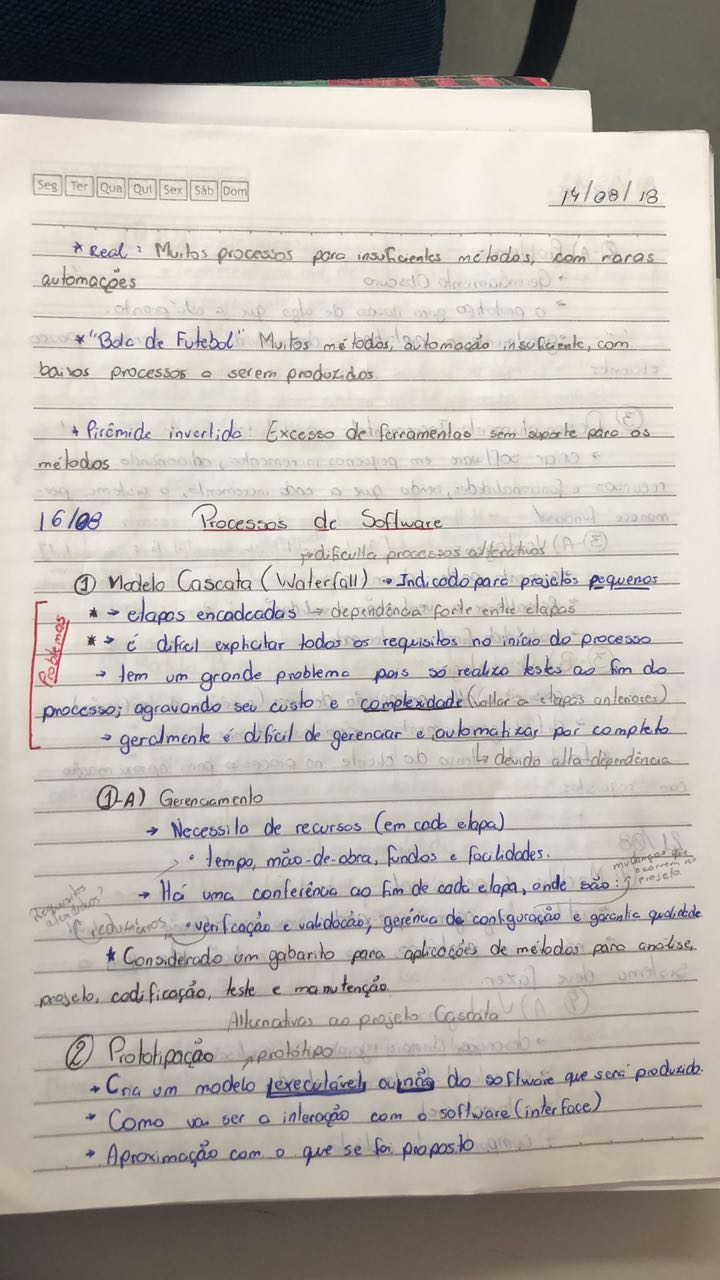 Seg Ter Qua Qui Sex Sáb Dom
14/08/18
* Real: Muitos processos para insuficientes métodos, com raras
automações
* "Bola de Futebol" Muitos métodos, automação insuficiente, com
baixos processos a serem produzidos
* Pirâmide invertida: Excesso de ferramentas sem suporte para os
métodos
16/08 Processos de Software
→ dificulta processos alterativos
① Modelo Cascata (Waterfall) → Indicado para projetos pequenos
Problemas
* → etapas encadeadas → dependência forte entre etapas
* → é difícil explicitar todos os requisitos no início do processo
→ tem um grande problema pois só realiza testes ao fim do
processo; agravando seu custo e complexidade (voltar a etapas anteriores)
→ geralmente é difícil de gerenciar e automatizar por completo
↳ devido alta dependência
①-A) Gerenciamento
→ Necessita de recursos (em cada etapa)
• tempo, mão-de-obra, fundos e facilidades.
mudanças que
ocorrem no
projeto
→ Há uma conferência ao fim de cada etapa, onde são:
Requisitos
• verificação e validação; gerência de configuração e garantia qualidade
* Considerado um gabarito para aplicações de métodos para analise,
projeto, codificação, teste e manutenção.
Alternativas ao projeto Cascata
② Prototipação → protótipo
→ Cria um modelo executável ou não do software que será produzido.
→ Como vai ser a interação com o software (interface)
→ Aproximação com o que se foi proposto